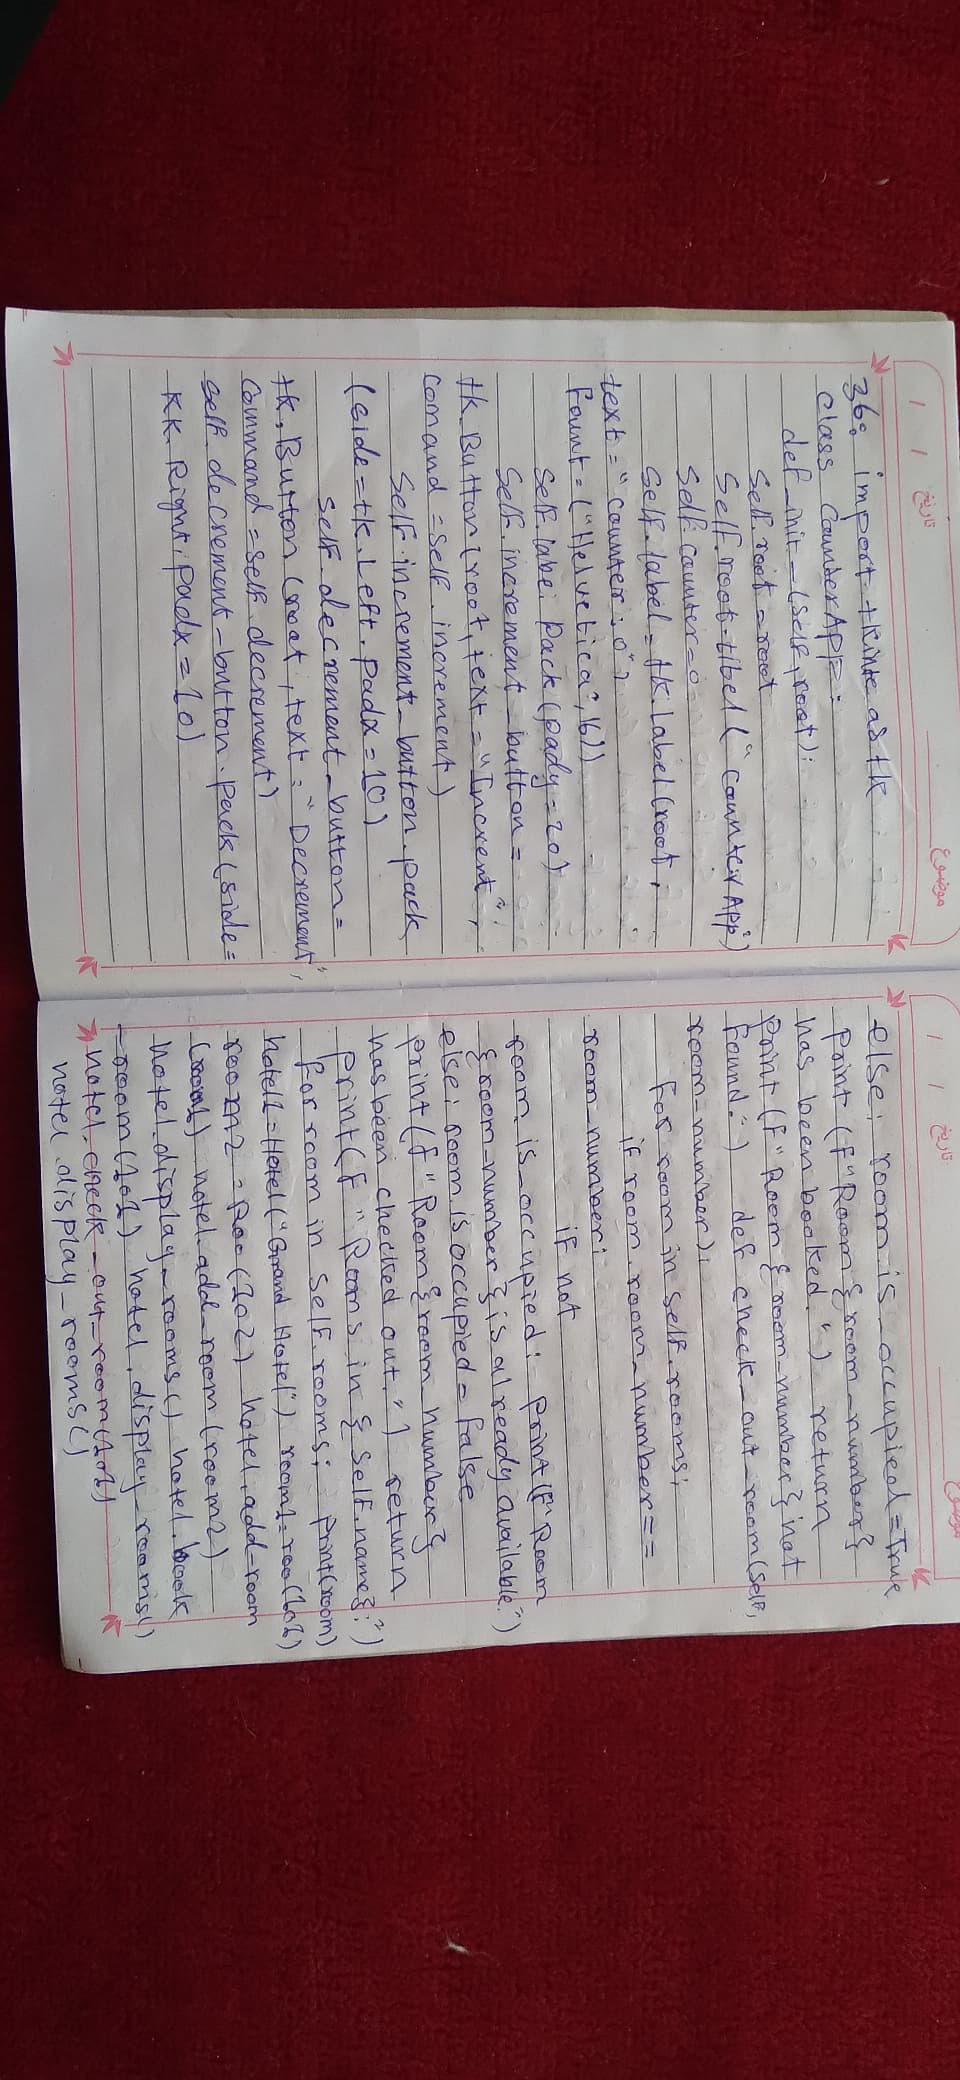 تاریخ
موضوع
36: import tkinte as tk
class CounterAPP:
def_init_(self, root):
Self.root = root
Self.root.tibel("CounterApp")
Self.counter = 0
Self.label = tk.label(root,
text = "counter:0")
Fount = ("Helvetica", 16))
Self.labe. pack(pady=20)
Self.increment_button =
tk.Button(root, text = "Increent",
comand = self.increment)
Self.increment_button.pack
(side = tk.Left. Padx = 10)
Self.decrement_button =
tk.Button(root, text = "Decrement",
command = self.decrement)
self.decrement_button.pack(side =
KK.Right, padx = 10)
تاریخ
موضوع
else: room.is_occupied = True
print(f"Room{room_number}
has been booked.") return
print(f"Room{room_number} not
Found.") def check_out_room(self,
room_number):
For room in self.rooms:
if room.room_number ==
room_number:
if not
room.is_occupied: print(f"Room
{room_number} is already available.")
else: room.is occupied = False
print(f"Room{room_number}
has been checked out.") return
print(f"Rooms in {self.name}:")
for room in self.rooms: print(room)
hotel1 = Hotel("Grand Hotel") room1 = roo(101)
room2 = Roo(202) hotel.add_room
(room1) hotel.add_room(room2)
hotel.display_rooms() hotel.book
_room(101) hotel.display_rooms()
hotel.check_out_room(101)
hotel.display_rooms()